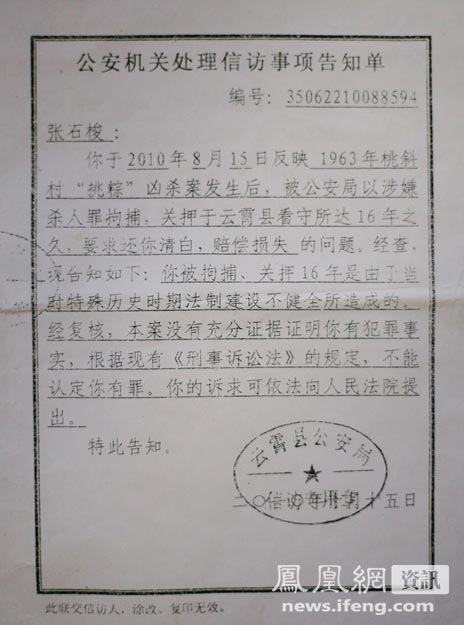 公安机关处理信访事项告知单
编号：35062210088594
张石梭：
你于2010年8月15日反映1963年桃斜
村“挑粽”凶杀案发生后，被公安局以涉嫌
杀人罪拘捕，关押于云霄县看守所达16年之
久，要求还你清白，赔偿损失 的问题。经查，
现告知如下：你被拘捕、关押16年是由于当
时特殊历史时期法制建设不健全所造成的，
经复核，本案没有充分证据证明你有犯罪事
实，根据现有《刑事诉讼法》的规定，不能
认定你有罪。你的诉求可依法向人民法院提
出。
特此告知。
云霄县公安局
信访专用章
二〇 年 月 十五日
此联交信访人，涂改、复印无效。
鳳凰網 資訊
news.ifeng.com